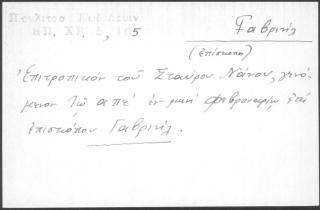 Πουλίτσα Κωδίκων
ΗΠ. ΧΡ. 5, 105
Γαβριήλ
(ἐπίσκοπος)
Ἐπιτροπικόν τοῦ Σταύρου Νάνου, γενό-
μενον ἐν μηνί Φεβρουαρίῳ ἐπί
ἐπισκόπου Γαβριήλ.